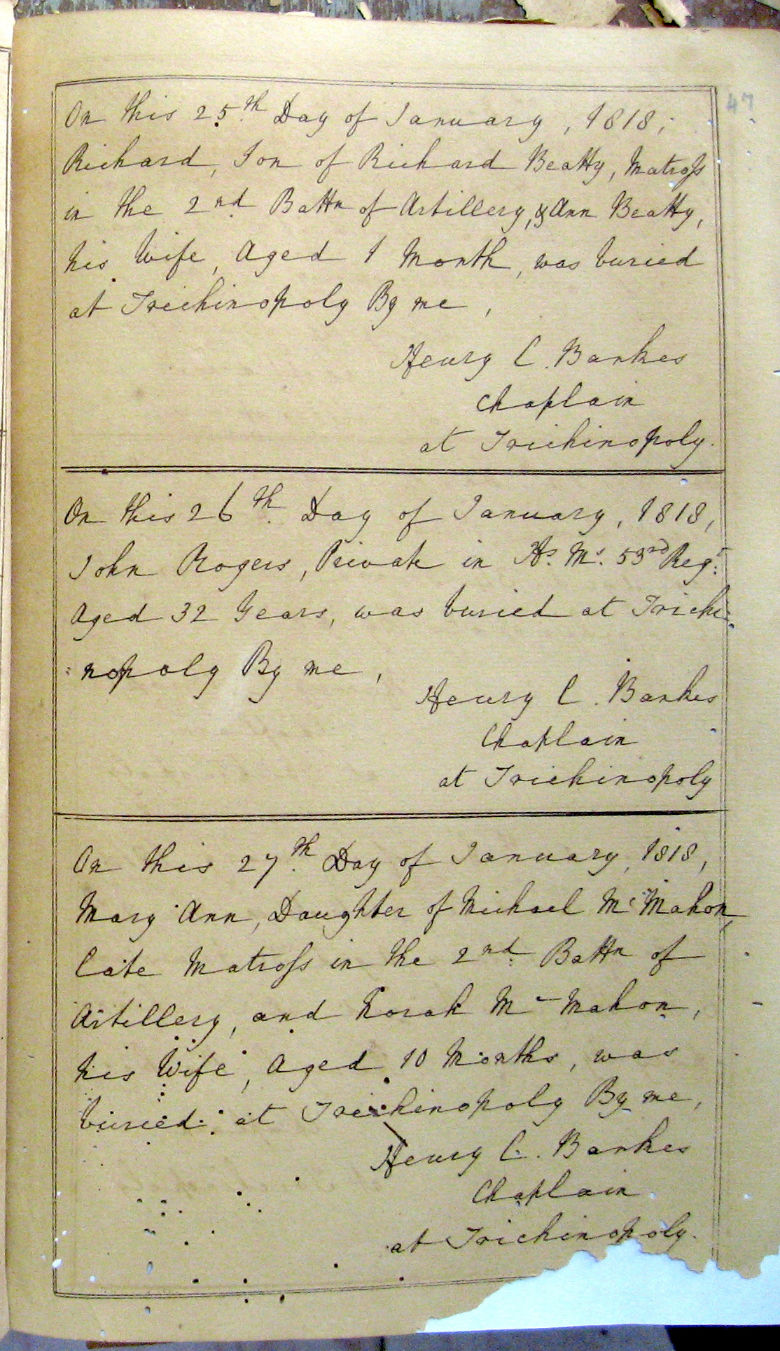 47
On this 25th Day of January, 1818,
Richard, Son of Richard Beatty, Matross
in the 2nd Battn of Artillery, & Ann Beatty,
his Wife, Aged 1 Month, was buried
at Trichinopoly By me,
Henry C. Bankes
Chaplain
at Trichinopoly.
On this 26th Day of January, 1818,
John Rogers, Private in Hs. Ms. 53rd Regt.
Aged 32 Years, was buried at Trichi-
nopoly By me,
Henry C. Bankes
Chaplain
at Trichinopoly
On this 27th Day of January, 1818,
Mary Ann, Daughter of Michael McMahon,
late Matross in the 2nd Battn of
Artillery, and Norah McMahon,
his Wife, Aged 10 Months, was
buried at Trichinopoly By me,
Henry C. Bankes
Chaplain
at Trichinopoly.